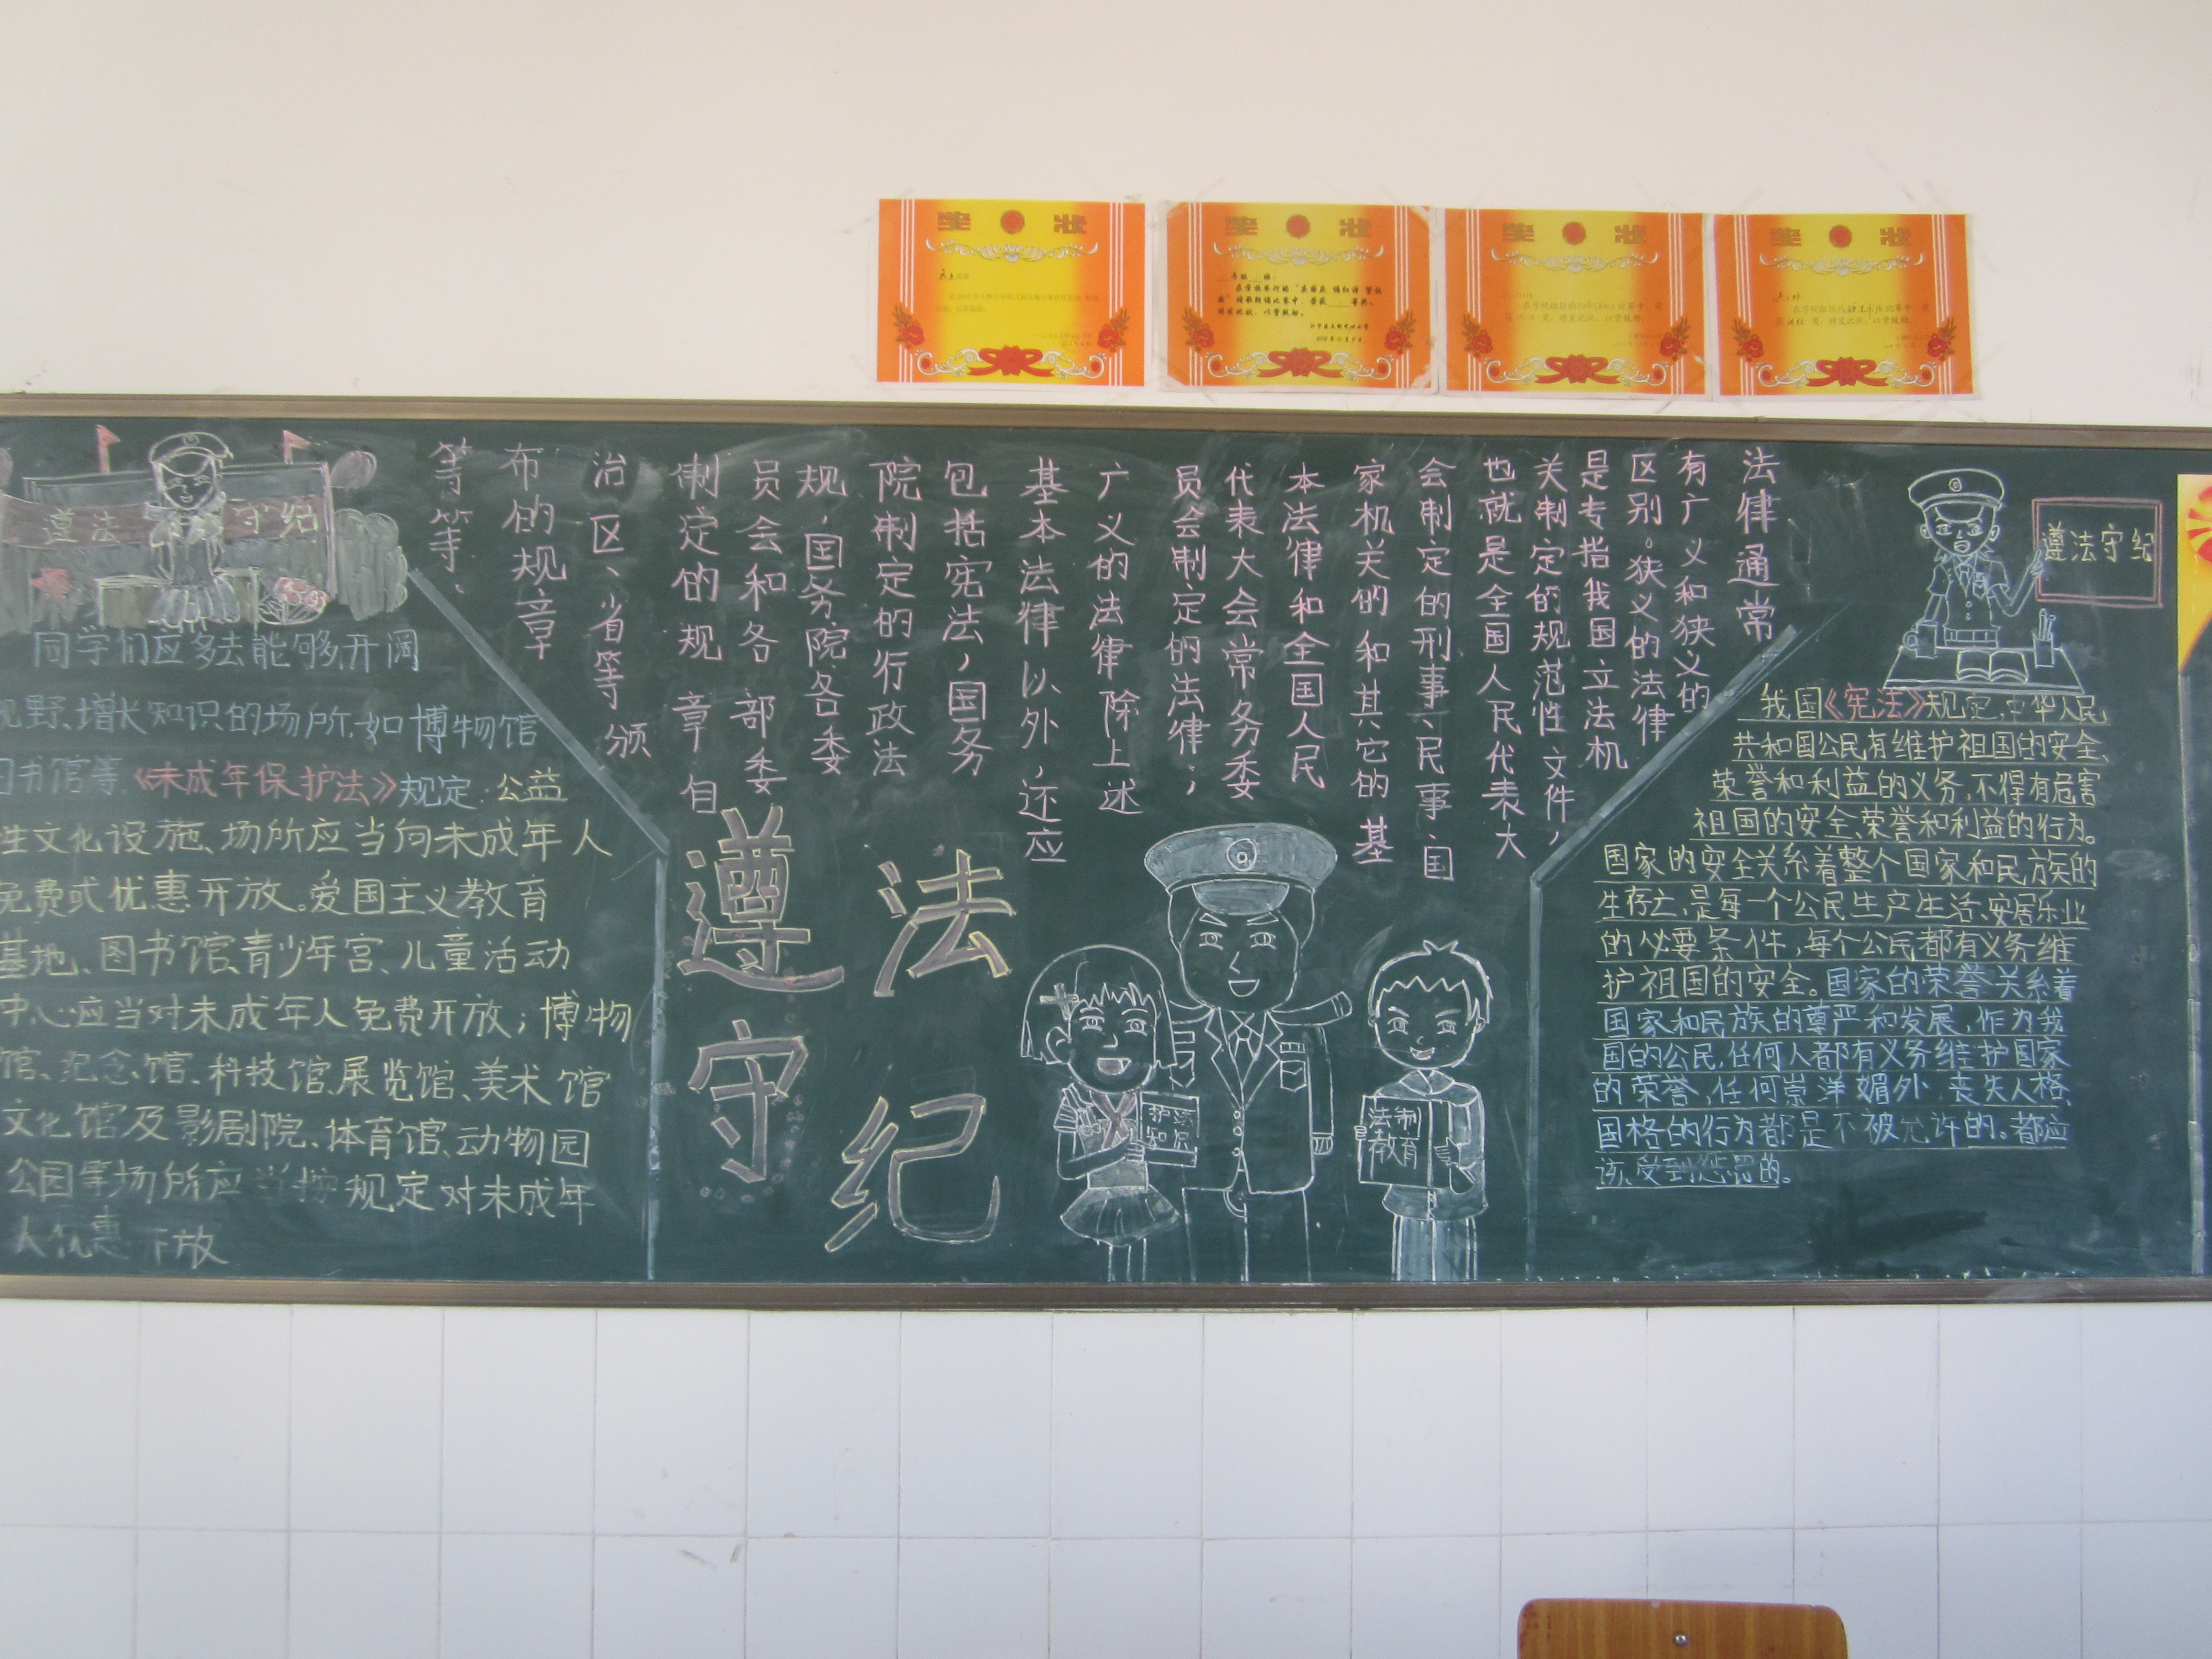 奖状
奖状
奖状
奖状
遵法守纪
同学们应多去能够开阔
视野、增长知识的场所,如博物馆
图书馆等.《未成年保护法》规定:公益
性文化设施、场所应当向未成年人
免费或优惠开放。爱国主义教育
基地、图书馆、青少年宫、儿童活动
中心应当对未成年人免费开放;博物
馆、纪念馆、科技馆、展览馆、美术馆
文化馆及影剧院、体育馆、动物园
公园等场所应当按规定对未成年
人优惠开放
法律通常
有广义和狭义的
区别。狭义的法律
是专指我国立法机
关制定的规范性文件,
也就是全国人民代表大
会制定的刑事、民事、国
家机关的和其它的基
本法律和全国人民
代表大会常务委
员会制定的法律;
广义的法律除上述
基本法律以外,还应
包括宪法,国务
院制定的行政法
规,国务院各委
员会和各部委
制定的规章自
治区、省等颁
布的规章
等等、
遵守
法纪
护法
法制
教育
遵法守纪
我国《宪法》规定,中华人民
共和国公民有维护祖国的安全、
荣誉和利益的义务,不得有危害
祖国的安全、荣誉和利益的行为。
国家的安全关系着整个国家和民族的
生存亡,是每一个公民生产生活、安居乐业
的必要条件,每个公民都有义务维
护祖国的安全。国家的荣誉关系着
国家和民族的尊严和发展,作为我
国的公民,任何人都有义务维护国家
的荣誉,任何崇洋媚外,丧失人格、
国格的行为都是不被允许的。都应
该受到惩罚的。